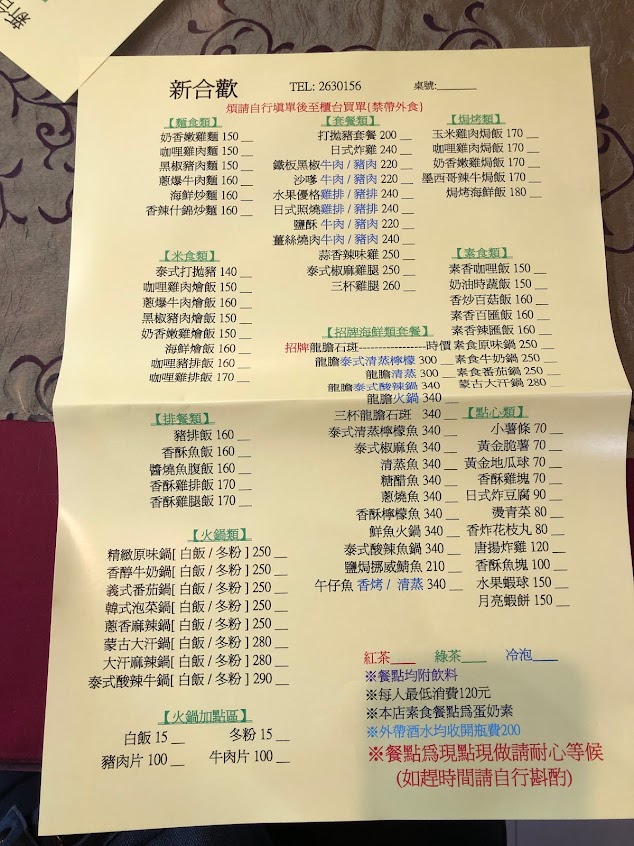 新合
新合歡 TEL: 2630156 桌號:______
煩請自行填單後至櫃台買單(禁帶外食)
【麵食類】
奶香嫩雞麵 150 __
咖哩雞肉麵 150 __
黑椒豬肉麵 150 __
蔥爆牛肉麵 160 __
海鮮炒麵 160 __
香辣什錦炒麵 160 __
【米食類】
泰式打拋豬 140 __
咖哩雞肉燴飯 150 __
蔥爆牛肉燴飯 160 __
黑椒豬肉燴飯 150 __
奶香嫩雞燴飯 150 __
海鮮燴飯 160 __
咖哩豬排飯 160 __
咖哩雞排飯 170 __
【排餐類】
豬排飯 160 __
香酥魚飯 160 __
醬燒魚腹飯 160 __
香酥雞排飯 170 __
香酥雞腿飯 170 __
【火鍋類】
精緻原味鍋[ 白飯 / 冬粉 ] 250 __
香醇牛奶鍋[ 白飯 / 冬粉 ] 250 __
義式番茄鍋[ 白飯 / 冬粉 ] 250 __
韓式泡菜鍋[ 白飯 / 冬粉 ] 250 __
蔥香麻辣鍋[ 白飯 / 冬粉 ] 250 __
蒙古大汗鍋[ 白飯 / 冬粉 ] 280 __
大汗麻辣鍋[ 白飯 / 冬粉 ] 280 __
泰式酸辣牛鍋[ 白飯 / 冬粉 ] 290 __
【火鍋加點區】
白飯 15 __ 冬粉 15 __
豬肉片 100 __ 牛肉片 100 __
【套餐類】
打拋豬套餐 200 __
日式炸雞 240 __
鐵板黑椒牛肉 / 豬肉 220 __
沙嗲 牛肉 / 豬肉 220 __
水果優格雞排 / 豬排 240 __
日式照燒雞排 / 豬排 240 __
鹽酥 牛肉 / 豬肉 220 __
薑絲燒肉牛肉 / 豬肉 240 __
蒜香辣味雞 250 __
泰式椒麻雞腿 250 __
三杯雞腿 260 __
【招牌海鮮類套餐】
招牌龍膽石斑-----------------時價
龍膽泰式清蒸檸檬 300 __
龍膽清蒸 300 __
龍膽泰式酸辣鍋 340 __
龍膽火鍋 340 __
三杯龍膽石斑 340 __
泰式清蒸檸檬魚 340 __
泰式椒麻魚 340 __
清蒸魚 340 __
糖醋魚 340 __
蔥燒魚 340 __
香酥檸檬魚 340 __
鮮魚火鍋 340 __
泰式酸辣魚鍋 340 __
鹽焗挪威鯖魚 210 __
午仔魚 香烤 / 清蒸 340 __
【焗烤類】
玉米雞肉焗飯 170 __
咖哩雞肉焗飯 170 __
奶香嫩雞焗飯 170 __
墨西哥辣牛焗飯 170 __
焗烤海鮮飯 180 __
【素食類】
素香咖哩飯 150 __
奶油時蔬飯 150 __
香炒百菇飯 160 __
素香百匯飯 160 __
素香辣匯飯 160 __
素食原味鍋 250 __
素食牛奶鍋 250 __
素食番茄鍋 250 __
蒙古大汗鍋 280 __
【點心類】
小薯條 70 __
黃金脆薯 70 __
黃金地瓜球 70 __
香酥雞塊 70 __
日式炸豆腐 90 __
燙青菜 80 __
香炸花枝丸 80 __
唐揚炸雞 120 __
香酥魚塊 100 __
水果蝦球 150 __
月亮蝦餅 150 __
紅茶____ 綠茶____ 冷泡____
※餐點均附飲料
※每人最低消費120元
※本店素食餐點爲蛋奶素
※外帶酒水均收開瓶費200
※餐點爲現點現做請耐心等候
(如趕時間請自行斟酌)